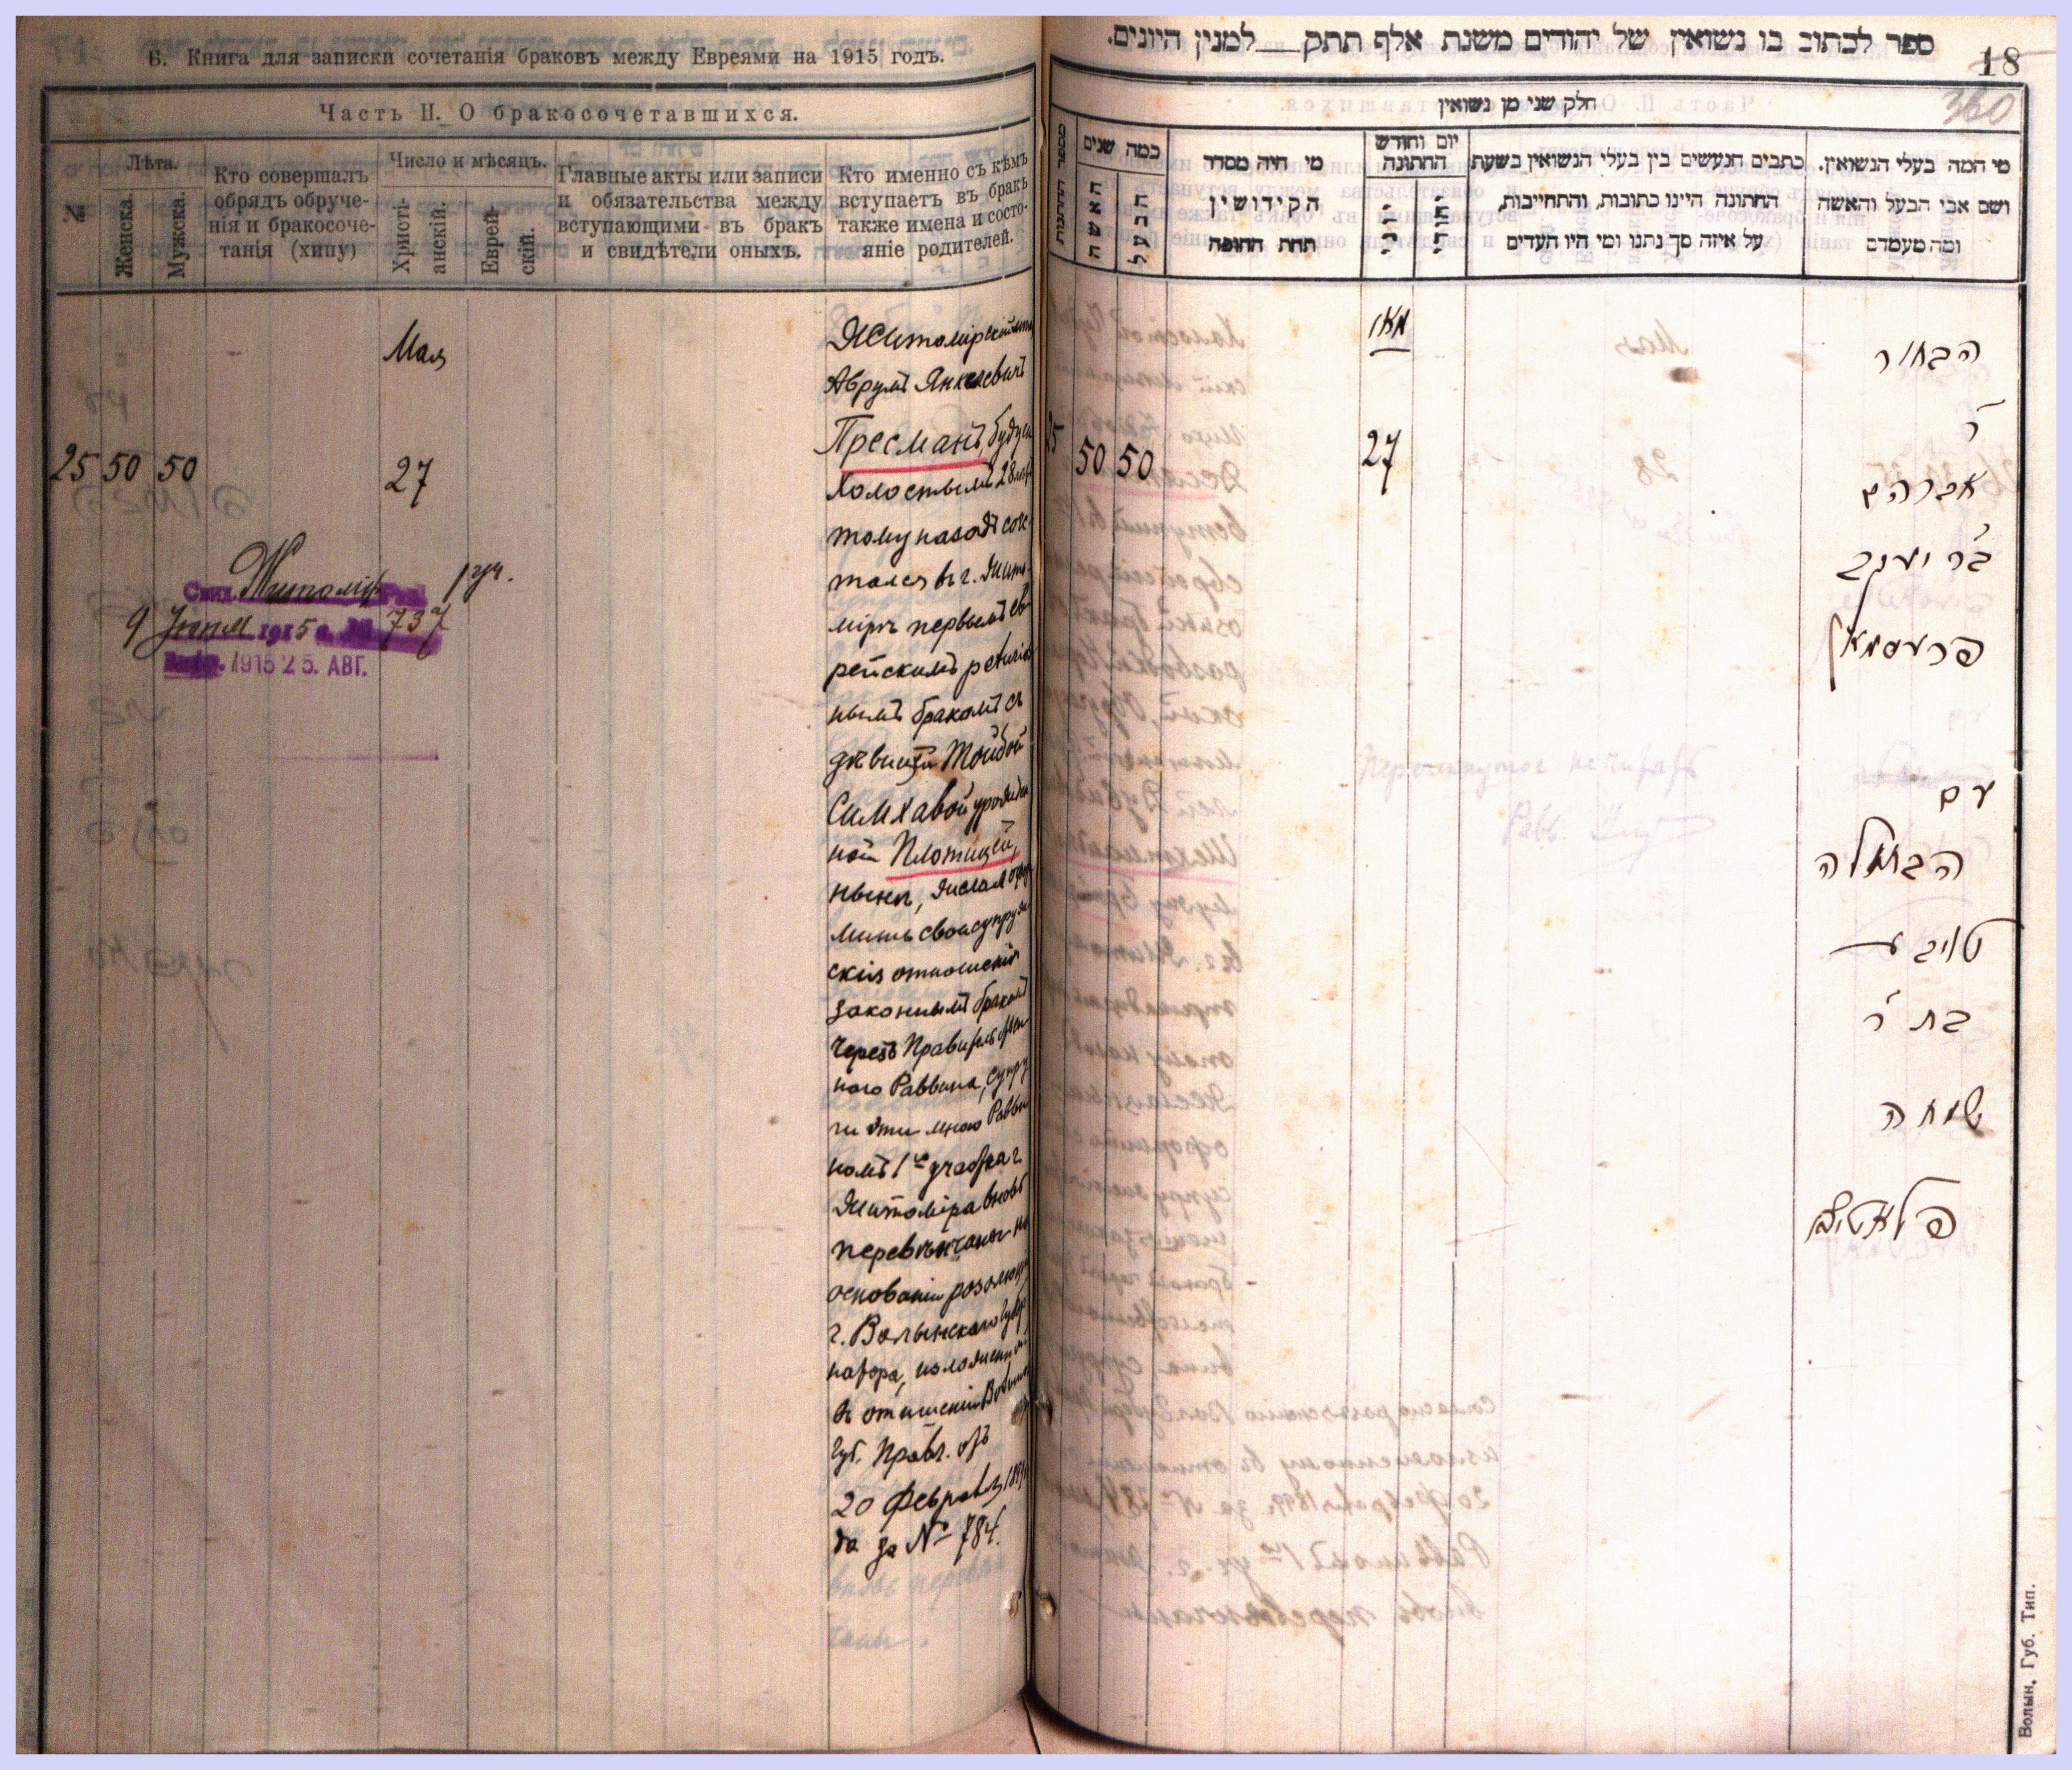 Б. Книга для записки сочетанія браковъ между Евреями на 1915 годъ.
Часть II. О бракосочетавшихся.
№
Лѣта.
Женска.
Мужска.
Кто совершалъ
обрядъ обруче-
нія и бракосоче-
танія (хипу)
Число и мѣсяцъ.
Христі-
анскій.
Еврей-
скій.
Главные акты или записи
и обязательства между
вступающими въ бракъ
и свидѣтели оныхъ.
Кто именно съ кѣмъ
вступаетъ въ бракъ
также имена и состо-
яніе родителей.
Мая
25 50 50
27
Житомір 1 уч.
9 1915 г. № 737
1915 25. АВГ.
Житомірскій
Аврумъ Янкелевичъ
Пресманъ, будучи
холостымъ 28 лѣтъ
тому назадъ соче-
тался въ г. Жито-
мірѣ первымъ ев-
рейскимъ религіоз-
нымъ бракомъ съ
дѣвицей Тойбой
Симховой урожден-
ной Плотицей,
нынѣ, желая офор-
мить свои супруже-
скія отношенія
законнымъ бракомъ
черезъ Правительствен-
наго Раввина, супру-
ги эти мною Равви-
номъ 1го участка г.
Житоміра вновь
перевѣнчаны на
основаніи резолюціи
г. Волынскаго Губер-
натора, изложенной
въ отношеніи Волынс.
Губ. Правл. отъ
20 Февраля 1899
да за № 784.
ספר לכתוב בו נשואין של יהודים משנת אלף תתק למנין היונים.
18
360
חלק שני מן נשואין
מספר החתונות
כמה שנים
האשה
הבעל
מי היה מסדר
הקידושין
תחת החופה
יום וחודש
החתונה
יוני
יהודי
כתבים הנעשים בין בעלי הנשואין בשעת
החתונה היינו כתובות, והתחייבות,
על איזה סך נתנו ומי היו העדים
מי המה בעלי הנשואין.
ושם אבי הבעל והאשה
ומה מעמדם
מאי
25 50 50
27
הבחור
ר׳
אברהם
בר׳ יעקב
פרעסמאן
עם
הבתולה
טויבע
בת ר׳
שמחה
פלאטיצע
Перечеркнутое не читать
Равв.
Волын. Губ. Тип.